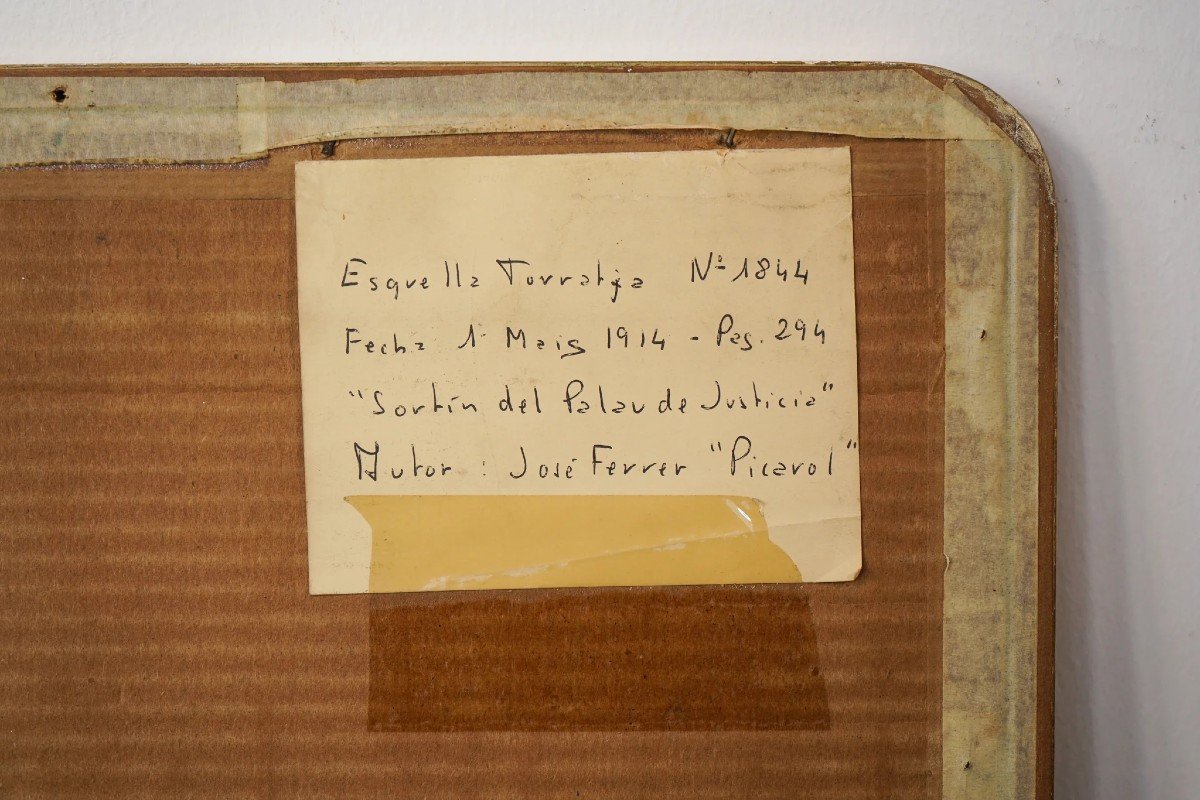 Esquella Torratja Nº 1844
Fecha 1 Maig 1914 - Pag. 294
"Sortín del Palau de Justicia"
Autor : José Ferrer "Picarol"